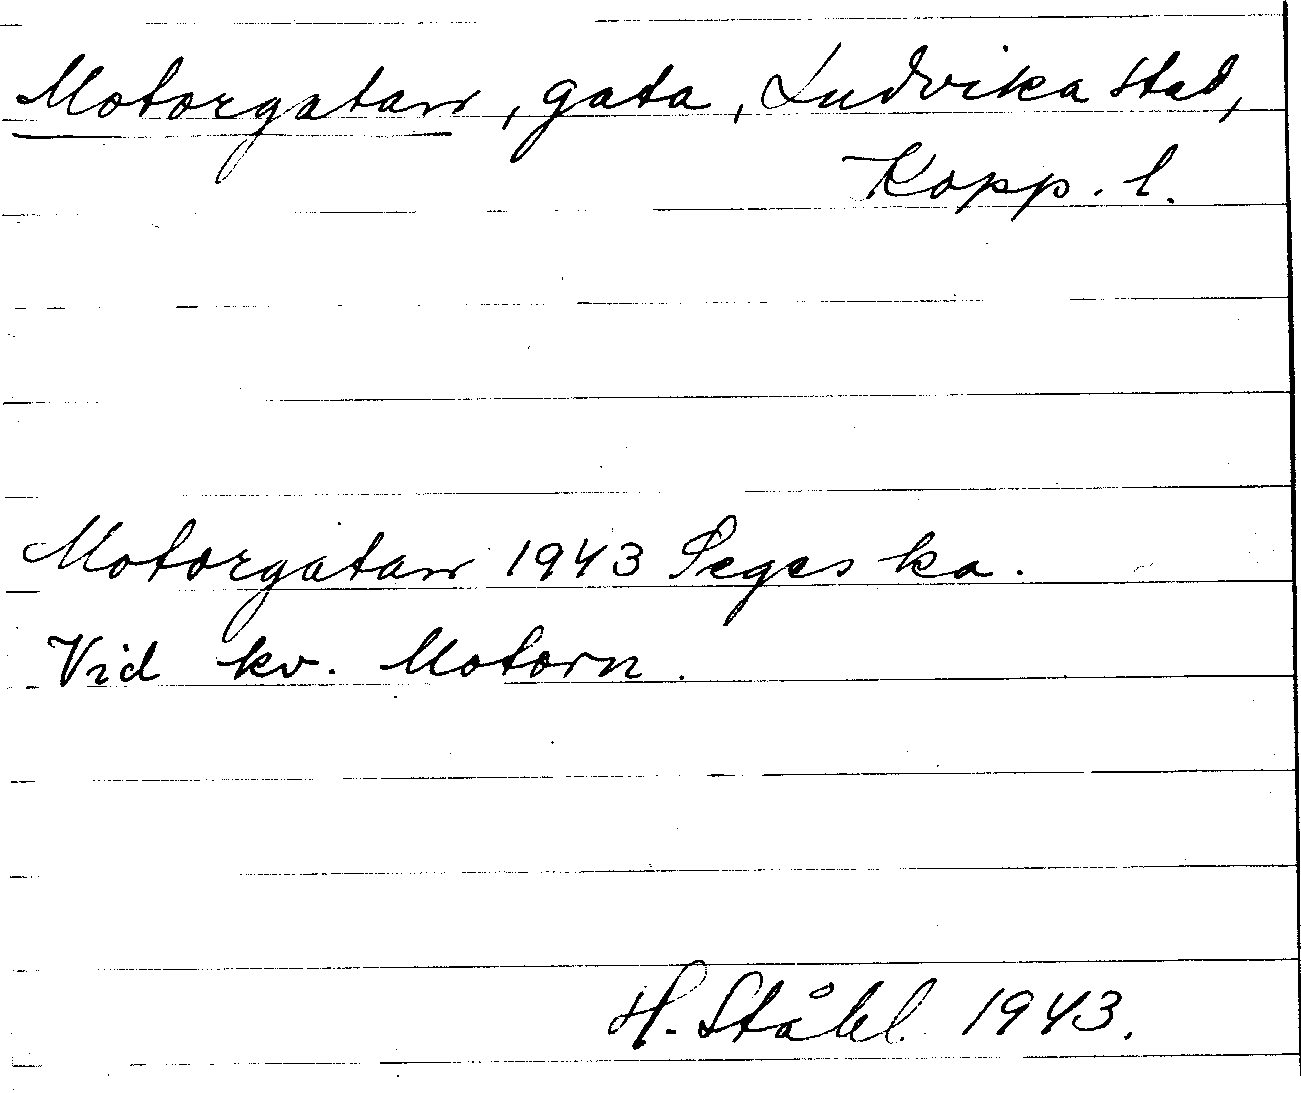 Motorgatan, gata, Ludvika stad,
Kopp. l.
Motorgatan 1943 Seges ka.
Vid kv. Motorn.
H. Ståhl 1943.